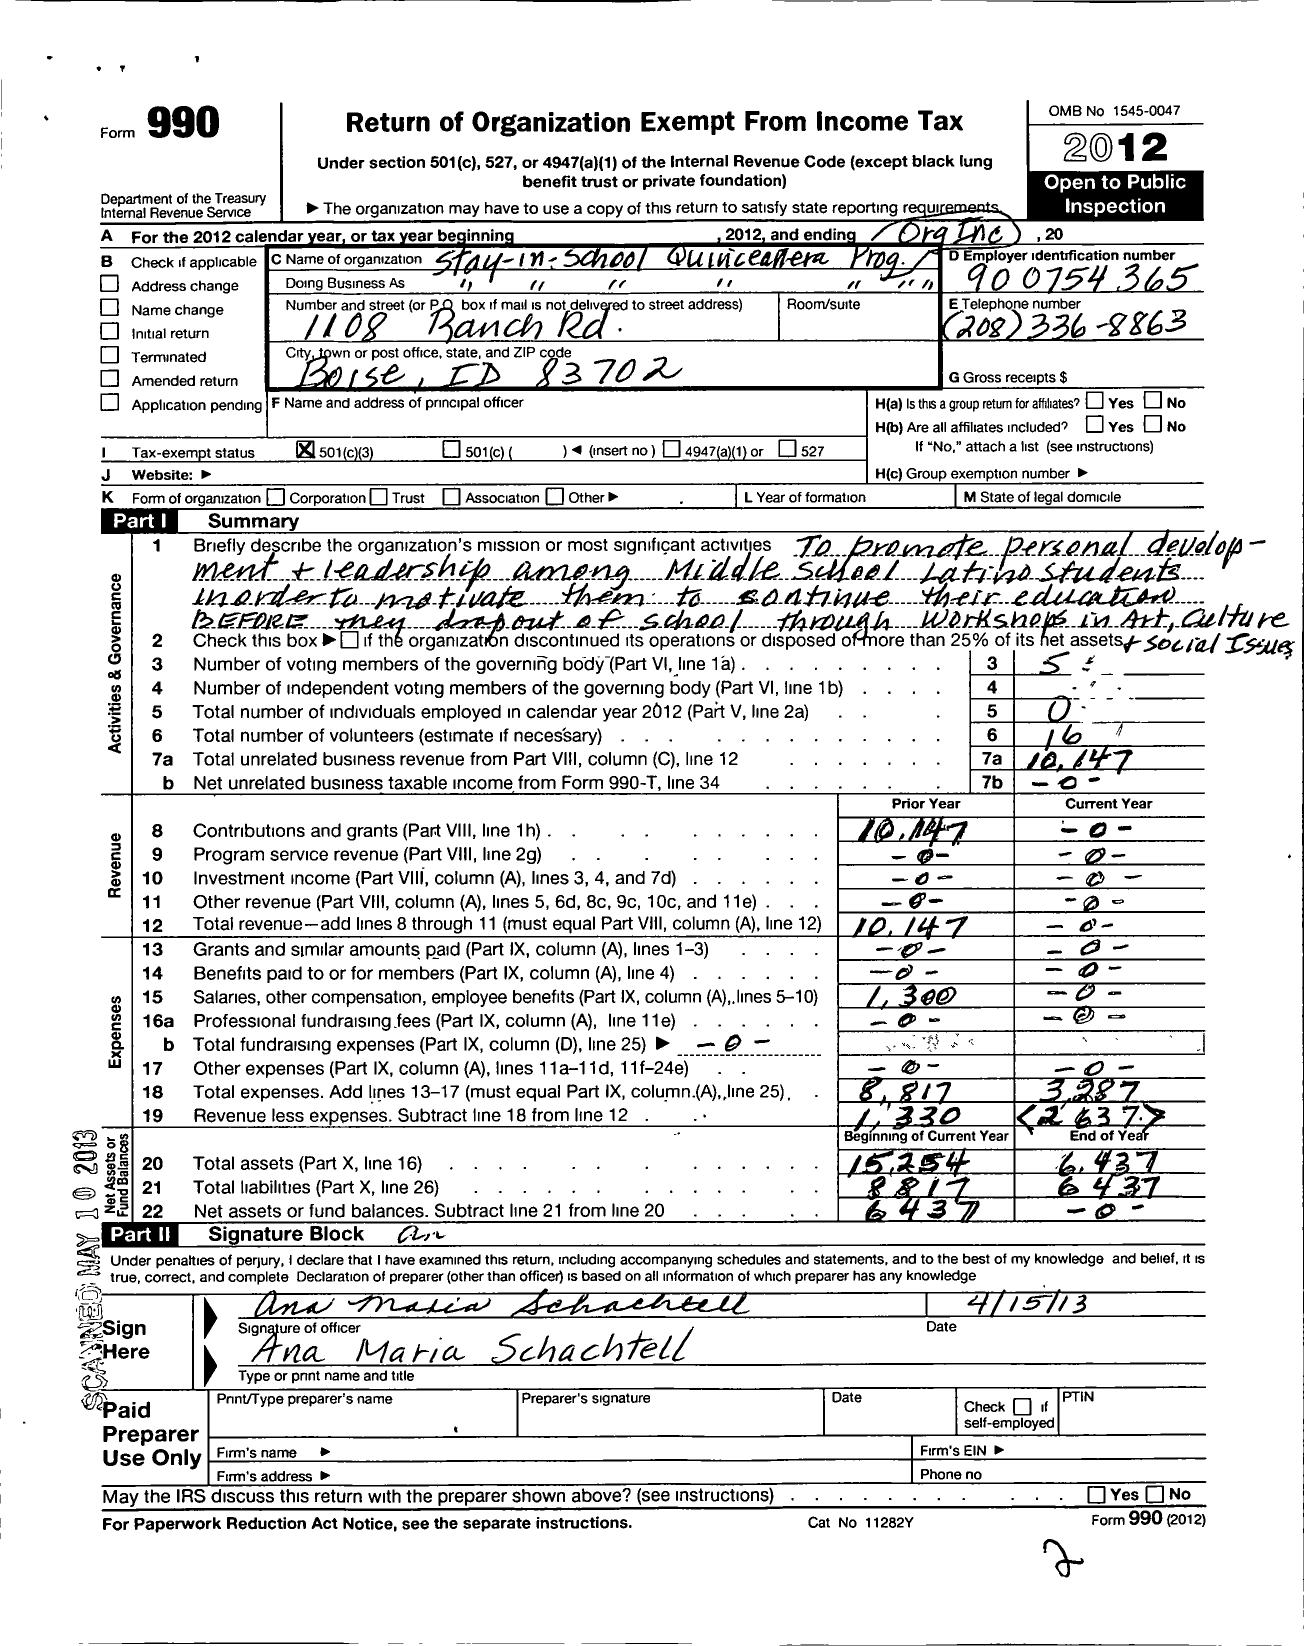 Form 990
Return of Organization Exempt From Income Tax
OMB No 1545-0047
2012
Under section 501(c), 527, or 4947(a)(1) of the Internal Revenue Code (except black lung
benefit trust or private foundation)
Open to Public
Inspection
Department of the Treasury
Internal Revenue Service
▶ The organization may have to use a copy of this return to satisfy state reporting requirements
A For the 2012 calendar year, or tax year beginning , 2012, and ending / Org Inc , 20
B Check if applicable
☐ Address change
☐ Name change
☐ Initial return
☐ Terminated
☐ Amended return
☐ Application pending
C Name of organization Stay-in-School Quinceañera Prog. /
Doing Business As " " " " " " "
Number and street (or P.O. box if mail is not delivered to street address)
Room/suite
1108 Ranch Rd.
City, town or post office, state, and ZIP code
Boise, ID 83702
D Employer identification number
900754365
E Telephone number
(208) 336-8863
G Gross receipts $
F Name and address of principal officer
H(a) Is this a group return for affiliates? ☐ Yes ☐ No
H(b) Are all affiliates included? ☐ Yes ☐ No
If "No," attach a list (see instructions)
H(c) Group exemption number ▶
I Tax-exempt status ☒ 501(c)(3) ☐ 501(c) ( ) ◀ (insert no ) ☐ 4947(a)(1) or ☐ 527
J Website: ▶
K Form of organization ☐ Corporation ☐ Trust ☐ Association ☐ Other ▶
L Year of formation
M State of legal domicile
Part I Summary
Activities & Governance
1 Briefly describe the organization's mission or most significant activities To promote personal develop-
ment + leadership among Middle School Latino students
in order to motivate them to continue their education
BEFORE they dropout of school through workshops in Art, Culture
2 Check this box ▶ ☐ if the organization discontinued its operations or disposed of more than 25% of its net assets + Social Issues
3 Number of voting members of the governing body (Part VI, line 1a) 3 5
4 Number of independent voting members of the governing body (Part VI, line 1b) 4
5 Total number of individuals employed in calendar year 2012 (Part V, line 2a) 5 0
6 Total number of volunteers (estimate if necessary) 6 16
7a Total unrelated business revenue from Part VIII, column (C), line 12 7a 10,147
b Net unrelated business taxable income from Form 990-T, line 34 7b -0-
Prior Year Current Year
Revenue
8 Contributions and grants (Part VIII, line 1h) 10,147 -0-
9 Program service revenue (Part VIII, line 2g) -0- -0-
10 Investment income (Part VIII, column (A), lines 3, 4, and 7d) -0- -0-
11 Other revenue (Part VIII, column (A), lines 5, 6d, 8c, 9c, 10c, and 11e) -0- -0-
12 Total revenue—add lines 8 through 11 (must equal Part VIII, column (A), line 12) 10,147 -0-
Expenses
13 Grants and similar amounts paid (Part IX, column (A), lines 1–3) -0- -0-
14 Benefits paid to or for members (Part IX, column (A), line 4) -0- -0-
15 Salaries, other compensation, employee benefits (Part IX, column (A), lines 5–10) 1,300 -0-
16a Professional fundraising fees (Part IX, column (A), line 11e) -0- -0-
b Total fundraising expenses (Part IX, column (D), line 25) ▶ -0-
17 Other expenses (Part IX, column (A), lines 11a–11d, 11f–24e) -0- -0-
18 Total expenses. Add lines 13–17 (must equal Part IX, column (A), line 25) 8,817 3,287
19 Revenue less expenses. Subtract line 18 from line 12 1,330 <2 637>
Net Assets or Fund Balances
Beginning of Current Year End of Year
20 Total assets (Part X, line 16) 15,254 6,437
21 Total liabilities (Part X, line 26) 8817 6437
22 Net assets or fund balances. Subtract line 21 from line 20 6437 -0-
SCANNED MAY 10 2013
Part II Signature Block
Under penalties of perjury, I declare that I have examined this return, including accompanying schedules and statements, and to the best of my knowledge and belief, it is
true, correct, and complete Declaration of preparer (other than officer) is based on all information of which preparer has any knowledge
Sign Here
Ana Maria Schachtell 4/15/13
Signature of officer Date
Ana Maria Schachtell
Type or print name and title
Paid Preparer Use Only
Print/Type preparer's name Preparer's signature Date Check ☐ if self-employed PTIN
Firm's name ▶ Firm's EIN ▶
Firm's address ▶ Phone no
May the IRS discuss this return with the preparer shown above? (see instructions) ☐ Yes ☐ No
For Paperwork Reduction Act Notice, see the separate instructions. Cat No 11282Y Form 990 (2012)
2